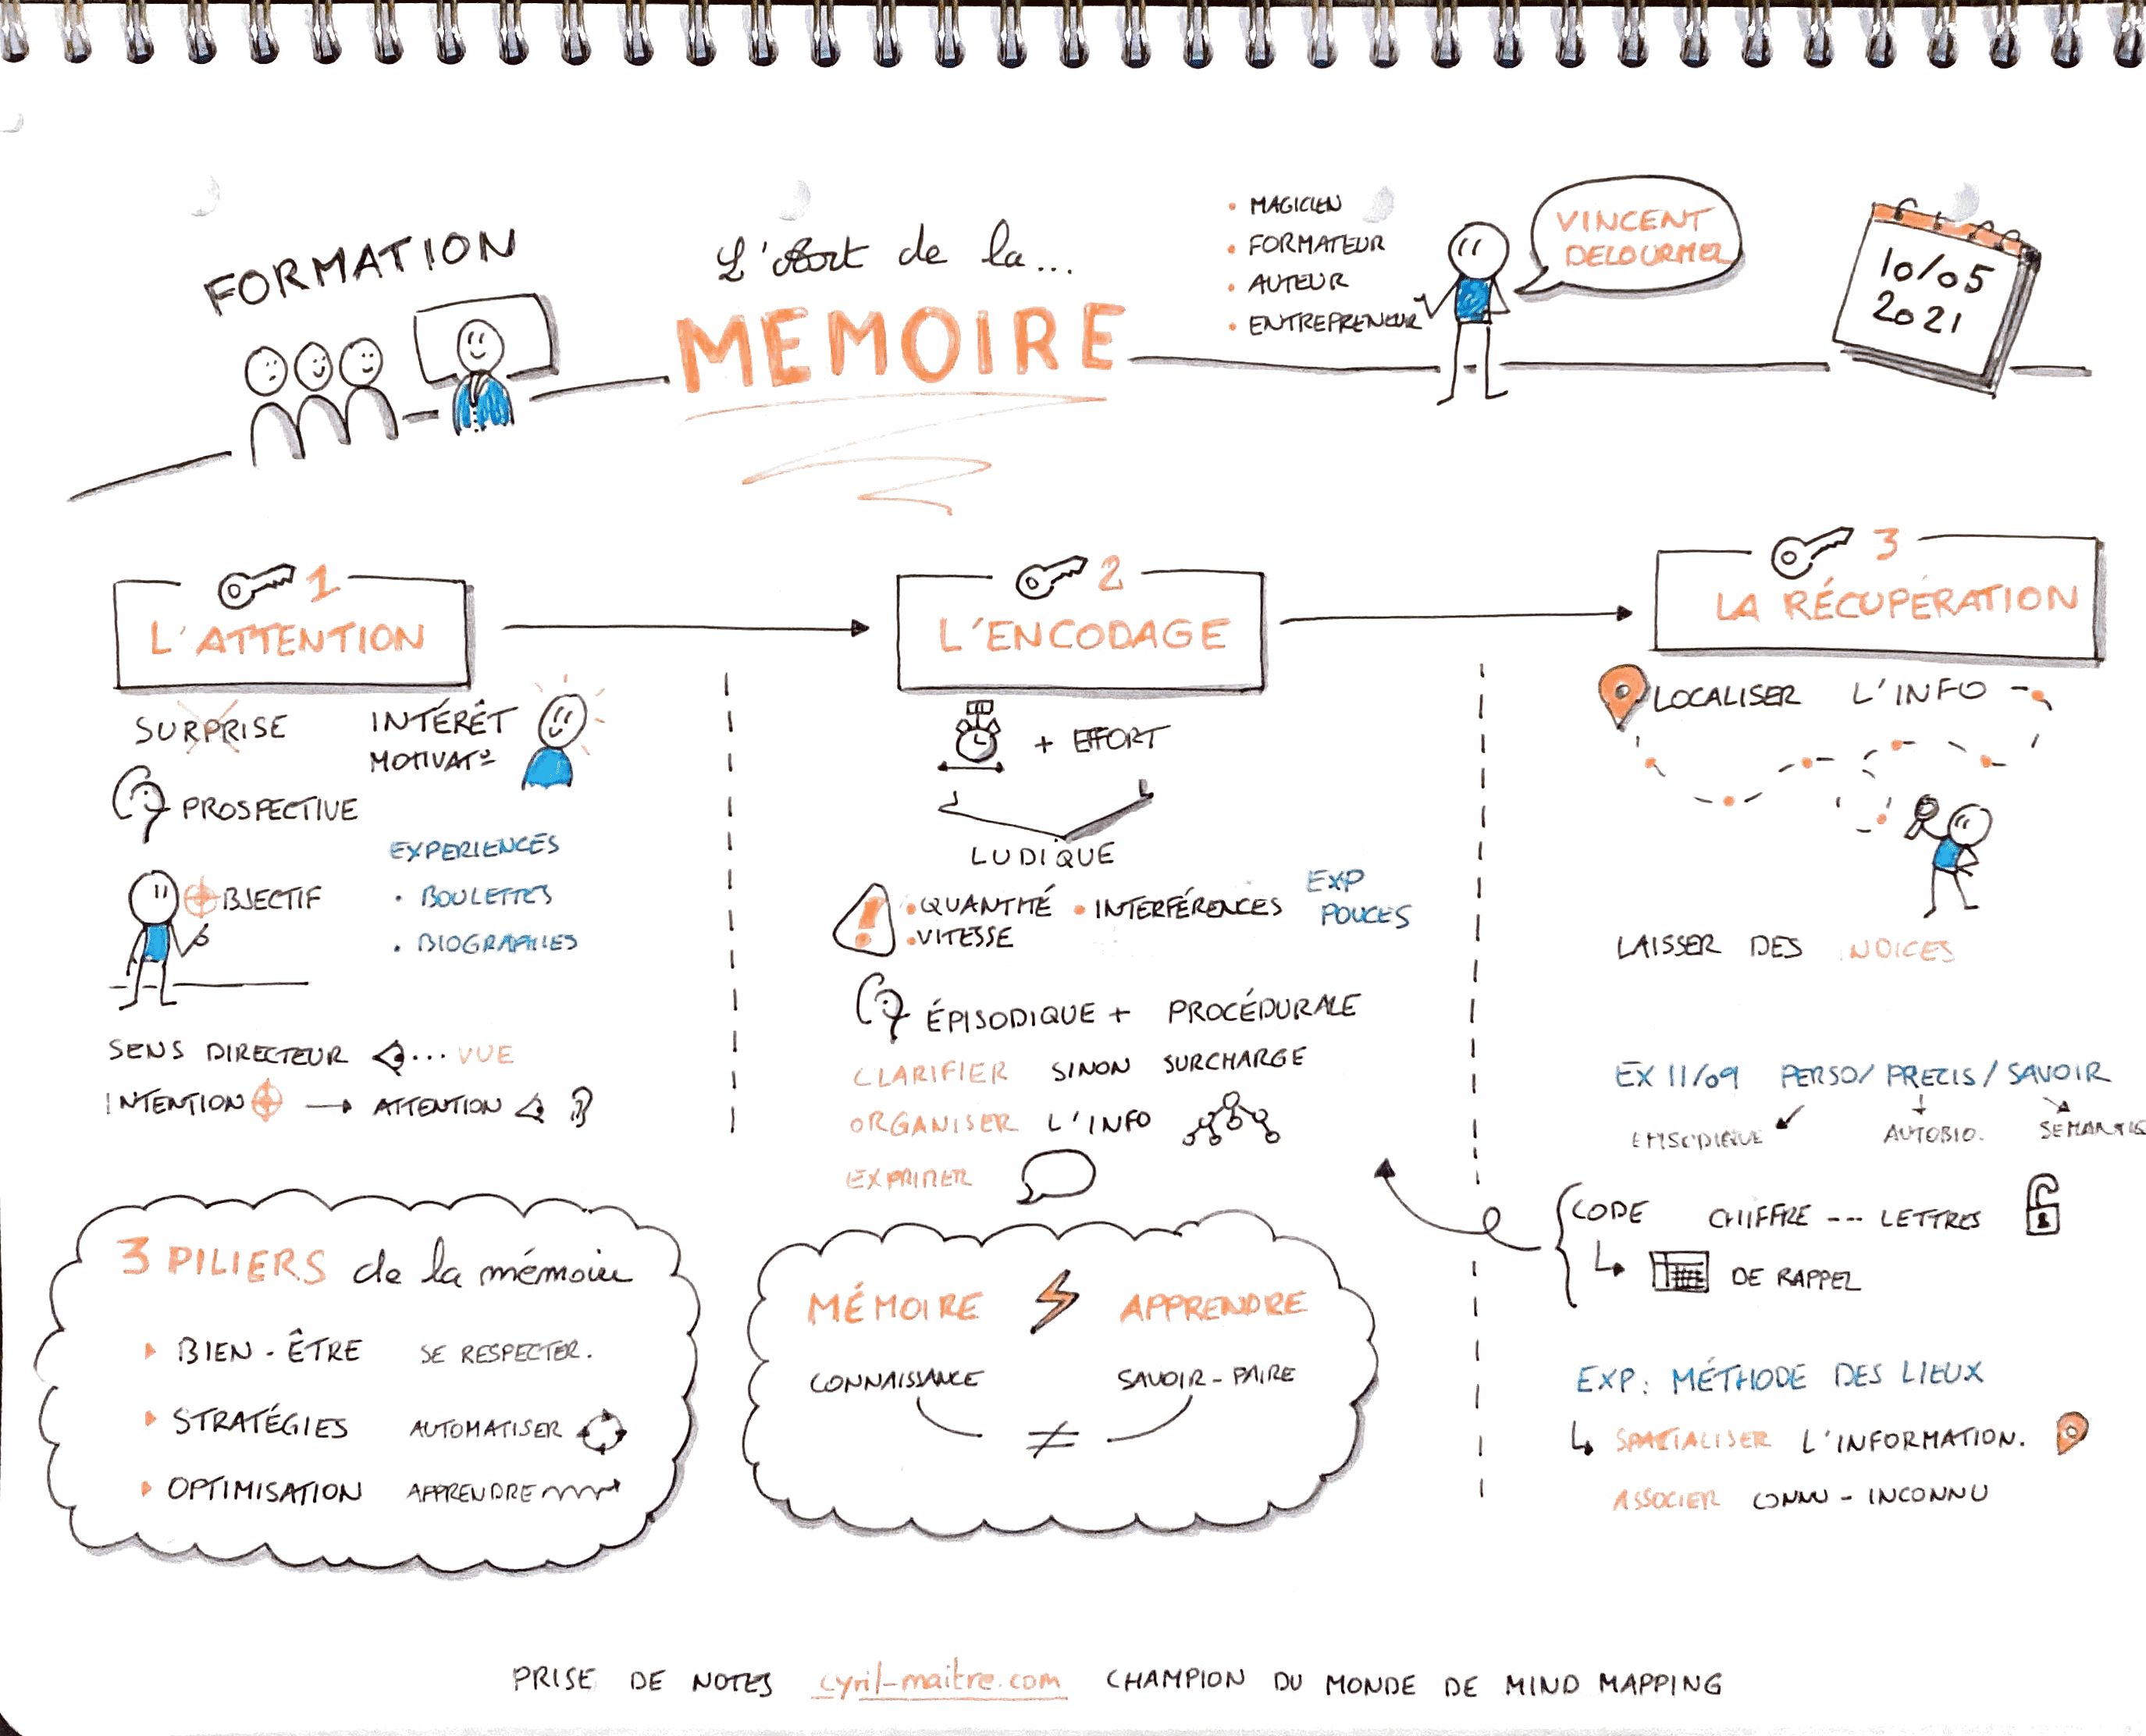 FORMATION
L'Art de la...
MEMOIRE
• MAGICIEN
• FORMATEUR
• AUTEUR
• ENTREPRENEUR
VINCENT
DELOURMEL
10/05
2021
1
L'ATTENTION
SURPRISE
INTÉRÊT
MOTIVAT°
PROSPECTIVE
EXPERIENCES
• BOULETTES
• BIOGRAPHIES
OBJECTIF
SENS DIRECTEUR ... VUE
INTENTION → ATTENTION
3 PILIERS de la mémoire
BIEN-ÊTRE SE RESPECTER.
STRATÉGIES AUTOMATISER
OPTIMISATION APPRENDRE
2
L'ENCODAGE
+ EFFORT
LUDIQUE
• QUANTITÉ • INTERFÉRENCES
• VITESSE
EXP
POUCES
ÉPISODIQUE + PROCÉDURALE
CLARIFIER SINON SURCHARGE
ORGANISER L'INFO
EXPRIMER
MÉMOIRE APPRENDRE
CONNAISSANCE SAVOIR-FAIRE
≠
3
LA RÉCUPÉRATION
LOCALISER L'INFO
LAISSER DES INDICES
EX 11/09 PERSO/ PRECIS / SAVOIR
EPISODIQUE AUTOBIO.
CODE CHIFFRE --- LETTRES
DE RAPPEL
EXP: MÉTHODE DES LIEUX
SPATIALISER L'INFORMATION.
ASSOCIER CONNU - INCONNU
PRISE DE NOTES cyril-maitre.com CHAMPION DU MONDE DE MIND MAPPING